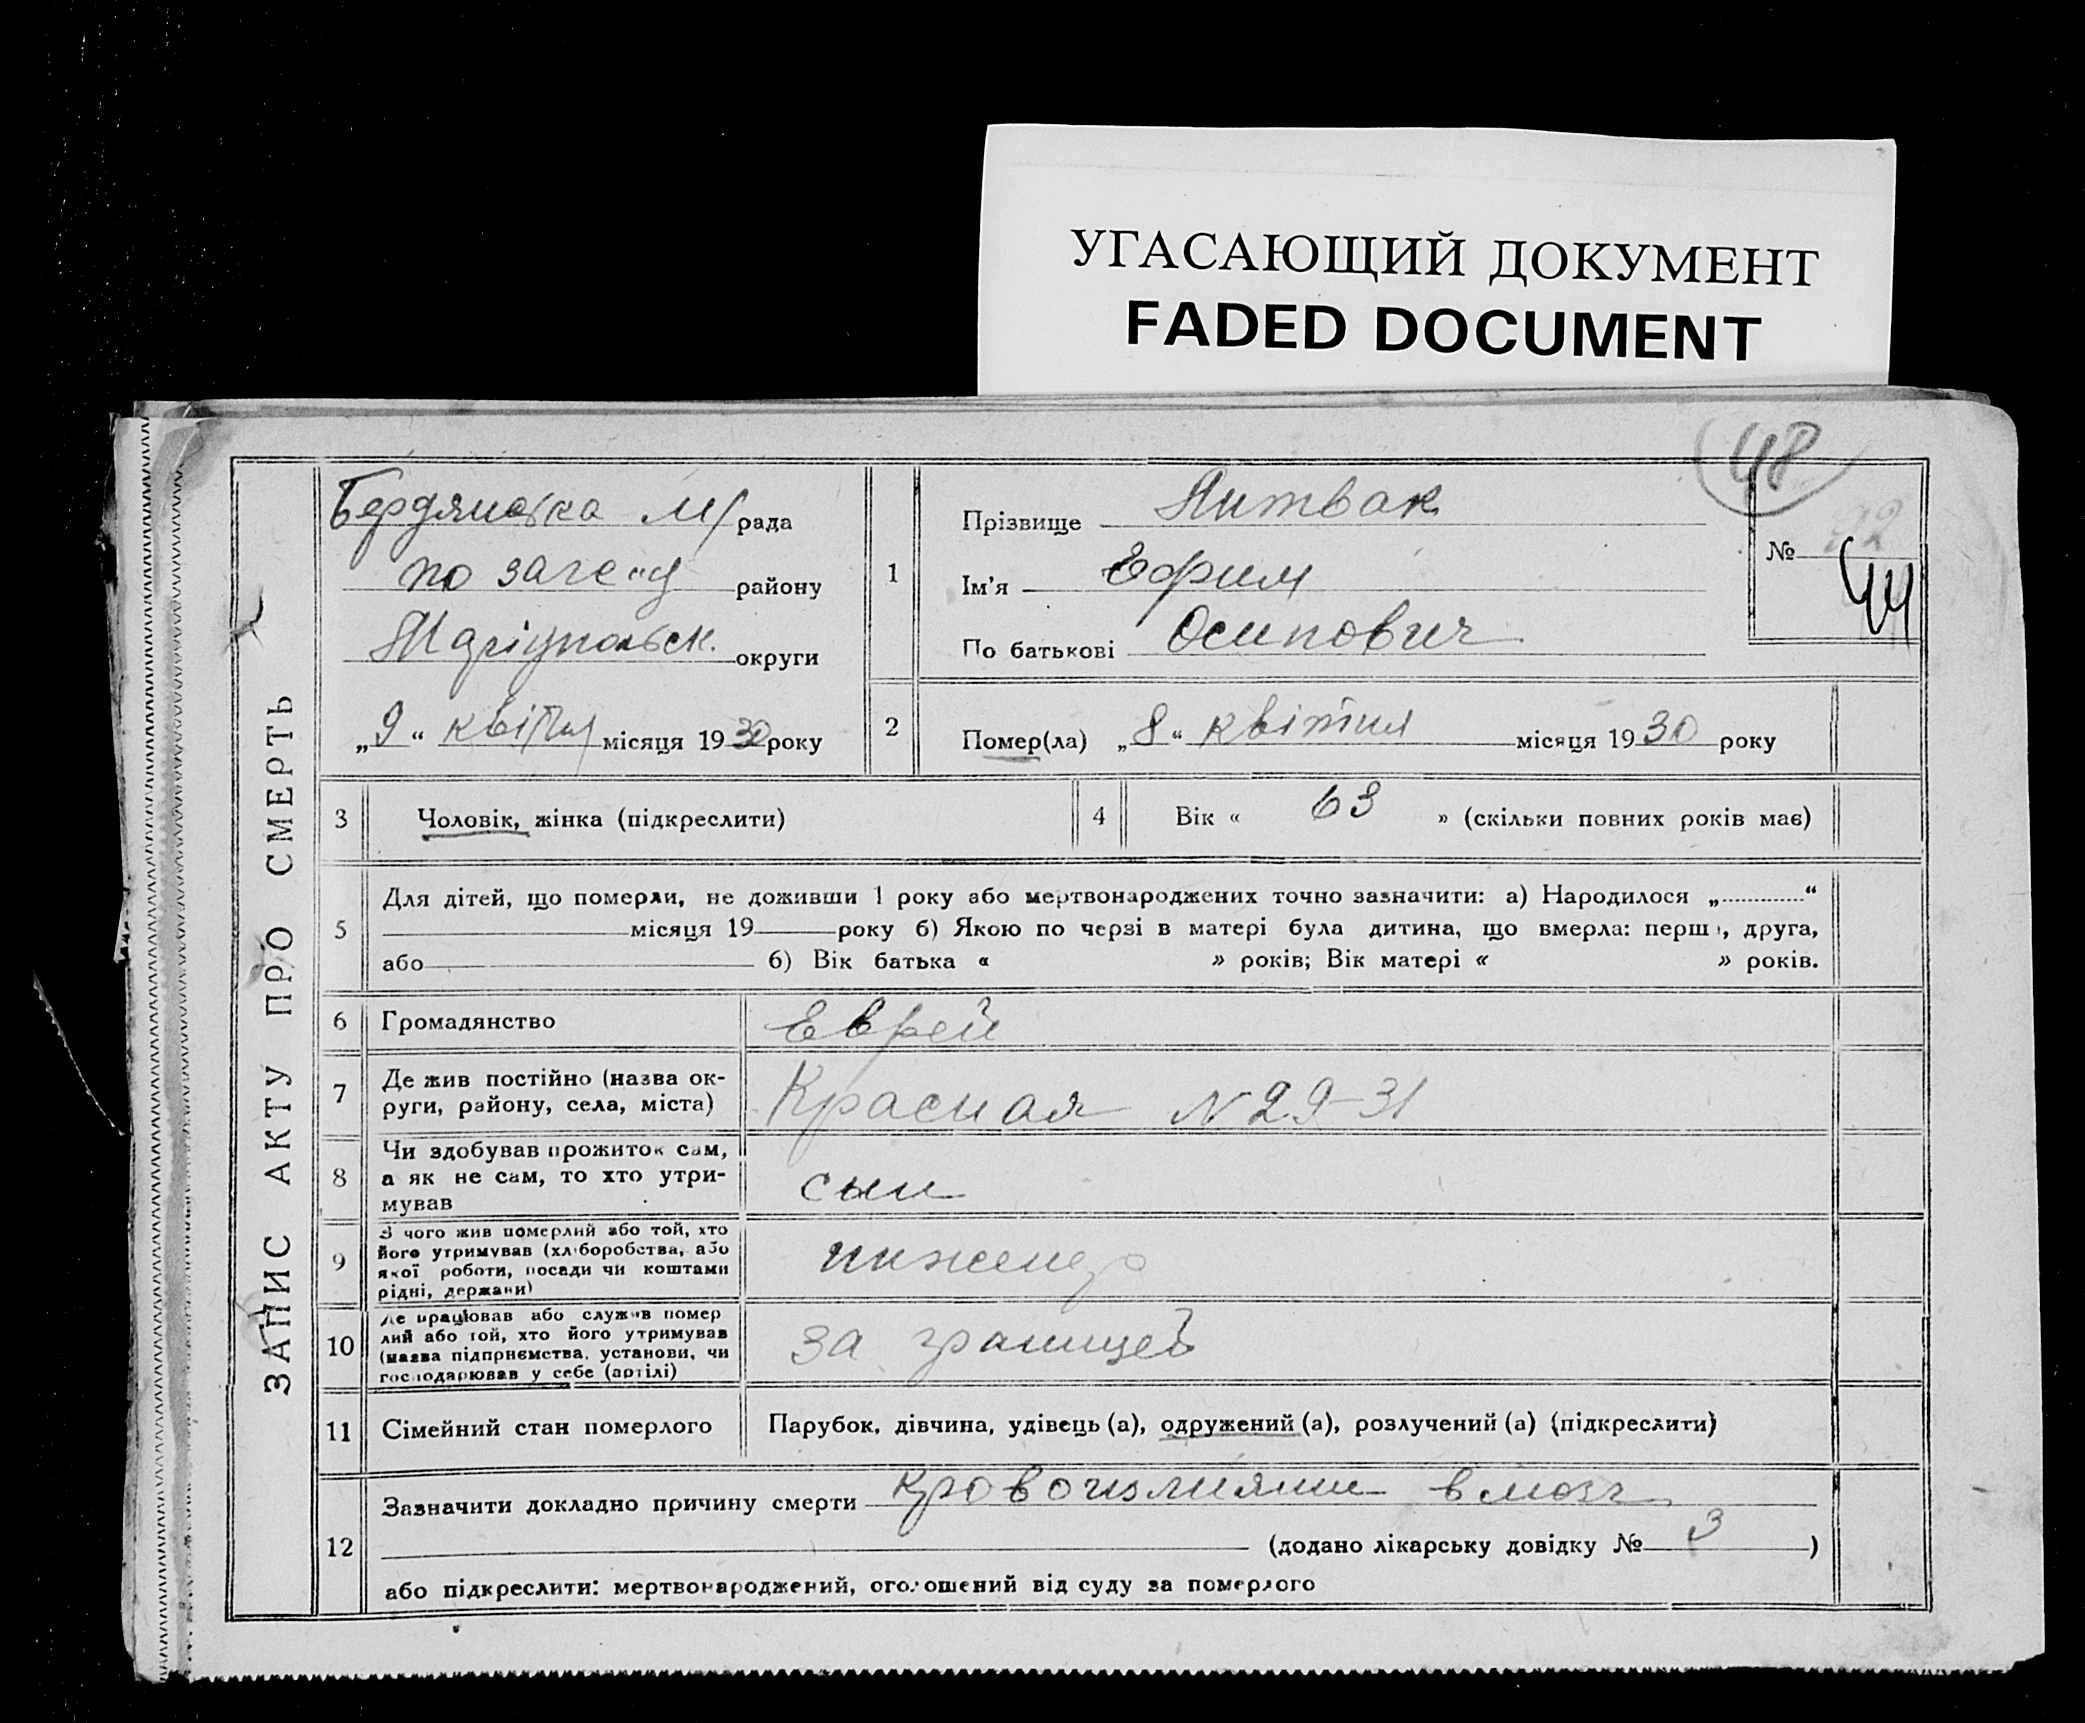 УГАСАЮЩИЙ ДОКУМЕНТ
FADED DOCUMENT
48
ЗАПИС АКТУ ПРО СМЕРТЬ
Бердянська м/рада
району
Маріупольськ. округи
„9“ квітня місяця 1930 року
1
Прізвище Литвак
Ім'я Ефим
По батькові Осипович
№ 92 44
2
Помер(ла) „8“ квітня місяця 1930 року
3 Чоловік, жінка (підкреслити)
4 Вік « 63 » (скільки повних років має)
5
Для дітей, що померли, не доживши 1 року або мертвонароджених точно зазначити: а) Народилося „ “
місяця 19 року б) Якою по черзі в матері була дитина, що вмерла: перша, друга,
або б) Вік батька « » років; Вік матері « » років.
6 Громадянство Еврей
7 Де жив постійно (назва ок-
руги, району, села, міста) Красная N 29-31
8 Чи здобував прожиток сам,
а як не сам, то хто утри-
мував сын
9 З чого жив померлий або той, хто
його утримував (хліборобства, або
якої роботи, посади чи коштами
рідні, держави) инженер
10 Де працював або служив помер
лий або той, хто його утримував
(назва підприємства, установи, чи
господарював у себе (артілі) за границей
11 Сімейний стан померлого Парубок, дівчина, удівець (а), одружений (а), розлучений (а) (підкреслити)
12
Зазначити докладно причину смерти Кровоизлияние в мозг
(додано лікарську довідку № 3 )
або підкреслити: мертвонароджений, оголошений від суду за померлого